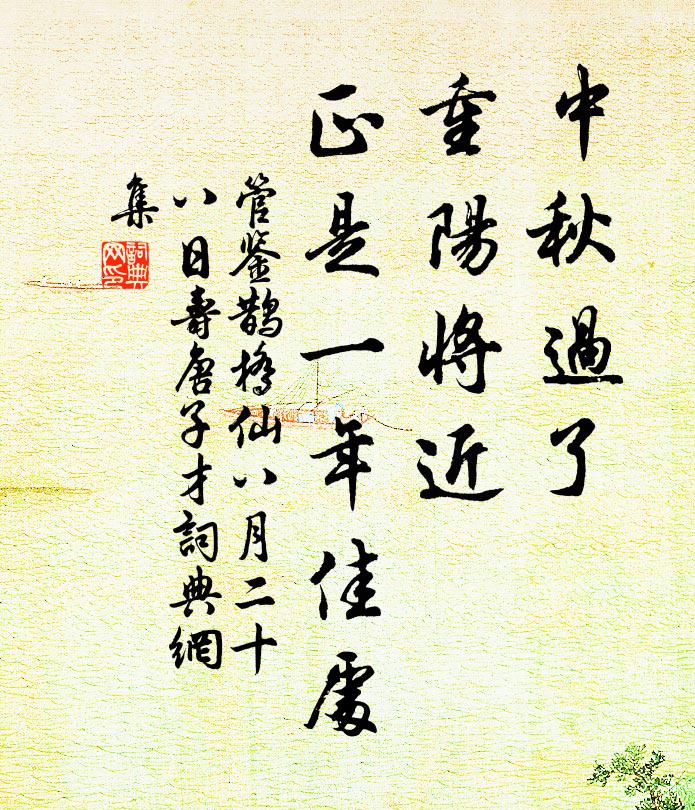 中秋過了
重陽將近
正是一年佳處
管鉴鵲橋仙八月二十
八日壽唐子才詞典網
集
詞典
网印